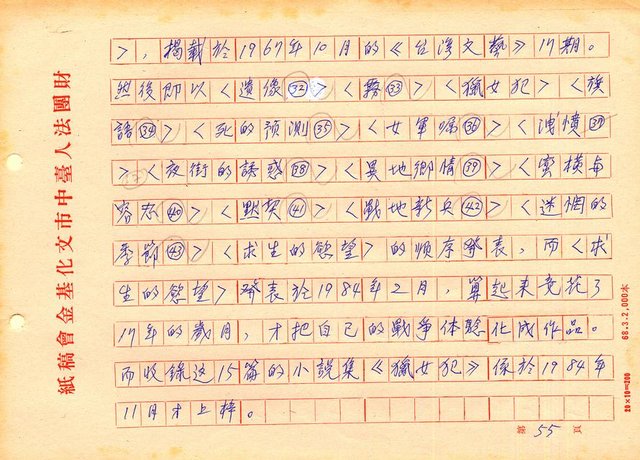 >，揭載於1967年10月的《台灣文藝》17期。
然後即以<遺像㉜><霧㉝><獵女犯><旗
語㉞><死的预測㉟><女軍囑㊱><洩憤㊲
><夜街的誘惑㊳><異地鄉情㊴><蛮横与
容忍㊵><默契㊶><戰地新兵㊷><迷惘的
季節㊸><求生的慾望>的順序發表，而<求
生的慾望>發表於1984年2月，算起来竟花了
17年的歲月，才把自己的戰爭体驗化成作品。
而收錄这15篇的小說集《獵女犯》係於1984年
11月才上梓。
第 55 頁
財團法人臺中市文化基金會稿紙
68.3.2,000本
20×10=200